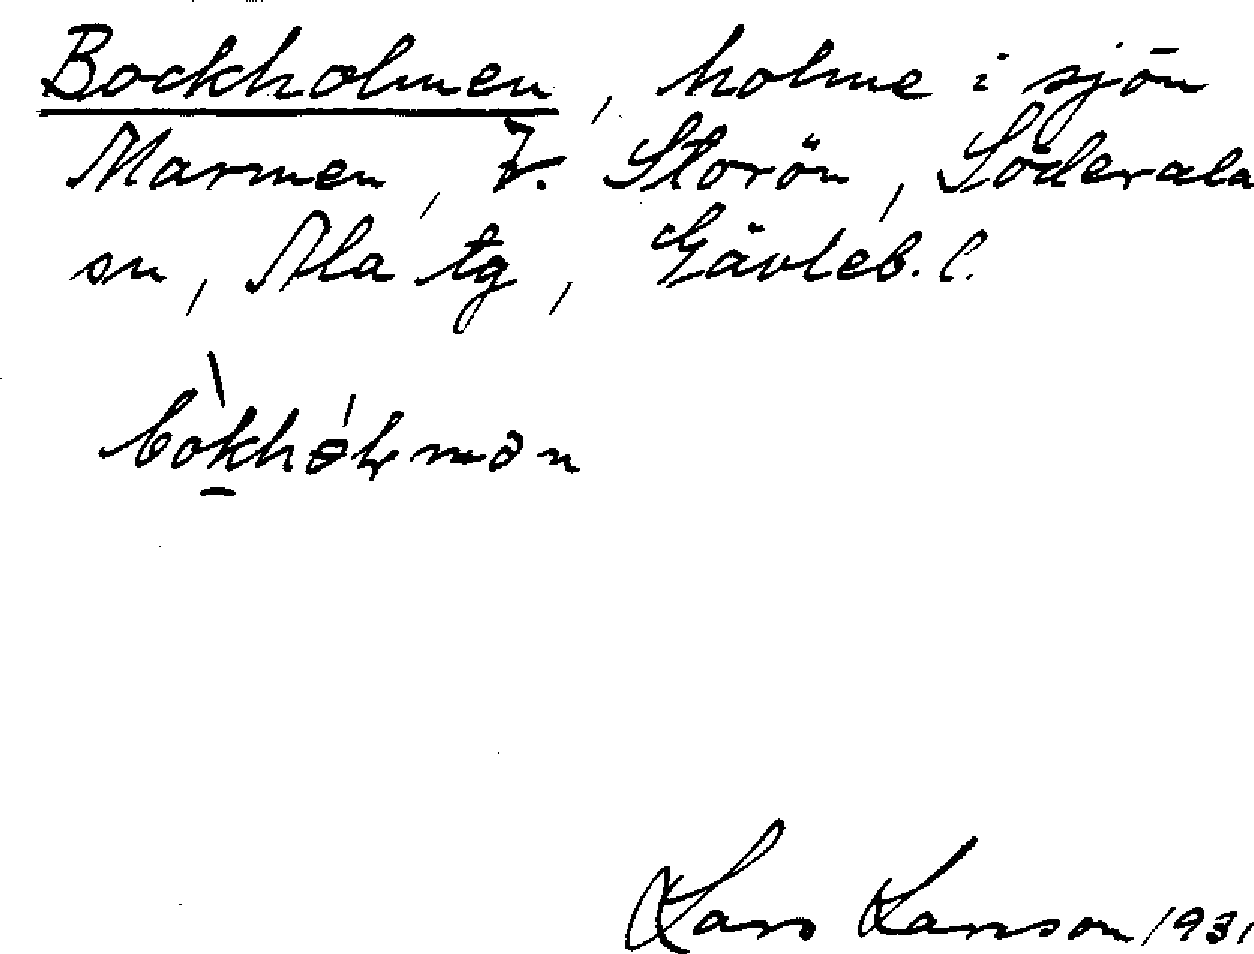 Bockholmen, holme i sjön
Marmen, V. Storön, Söderala
sn, Ala tg, Gävleb. l.
bòkhólmən
Lars Larsson 1931